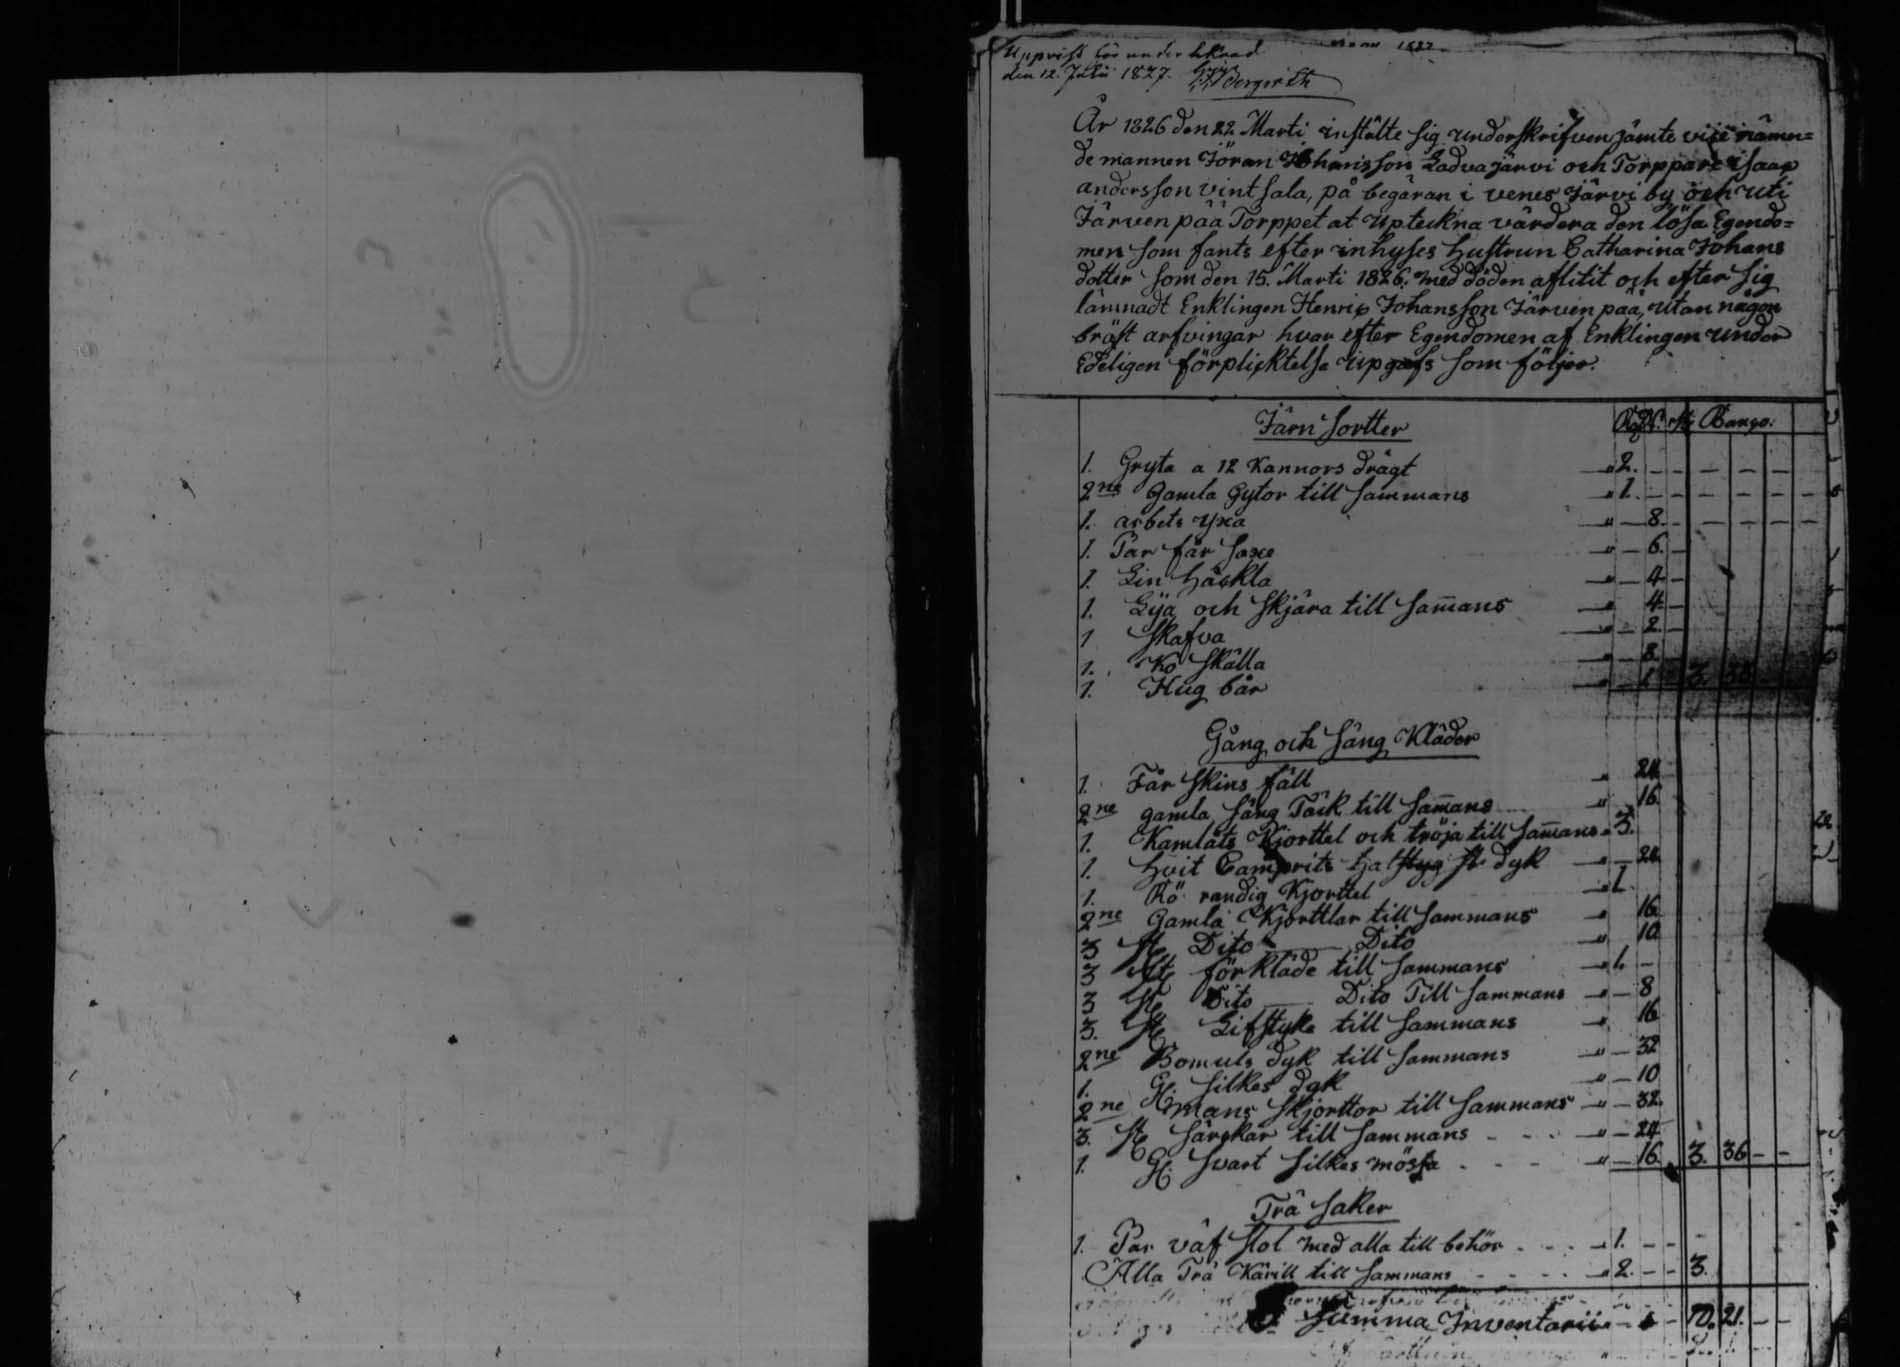 Uppvist för underskrad
den 12. Julii 1827.
År 1826 den 22. Marti instälte sig underskrifven jämte vice nämn=
de mannen Jöran Johansson Ladvajärvi och Torppare isaac
andersson vintsala, på begäran i venesjärvi by och uti
Järvenpää Torppet at Upteckna värdera den lösa Egendo=
men som fants efter inhyses hustrun Catharina Johans
dotter som den 15. Marti 1826. med döden aflitit och efter sig
lämnadt Enklingen Henric Johansson Järvenpää, utan någon
bröst arfvingar hvar efter Egendomen af Enklingen under
Edeligen förplicktelse Upgafs som följer.
Järn sortter Banco.
1. Gryta a 12 Kannors drägt " 2. – – – – –
2ne Gamla Gytor till sammans " 1. – – – – –
1. arbets yxa " – 8. – – – –
1. Par får saxe " – 6. –
1. Lin häckla " – 4 –
1. Lija och skjära till samans " 4. –
1 Skafva " – 2. –
1. Kö skälla " – 8. –
1. Hug bår " 3.
Gång och säng Kläder
1. Får skins fäll " 24.
2ne gamla säng Täck till samans " 16.
1. Kamlåts Kjorttel och tröja till samans " 3.
1. hvit Camprits halstyg dyk " – 24
1. Rö randig Kjorttel " 1.
2ne Gamla Kjorttlar till sammans " 16.
3 st. Dito — Dito " 10
3 st. förkläde till sammans " 1. –
3 st. Dito — Dito Till sammans " – 8
3. st. Lifstyke till sammans " 16
2ne Bomuls dyk till sammans " – 32
1. Gl. silkes dyk " – 10
2ne mans skjorttor till sammans " – 32.
3. st. särckar till sammans " – 24
1. Gl. svart silkes mössa " – 16. 3. 36 – –
Trä saker
1. Par väf stol med alla till behör " 1. – –
Alla Trä Kärill till sammans " 2. – – 3.
Summa Inventarii 10. 21. – –